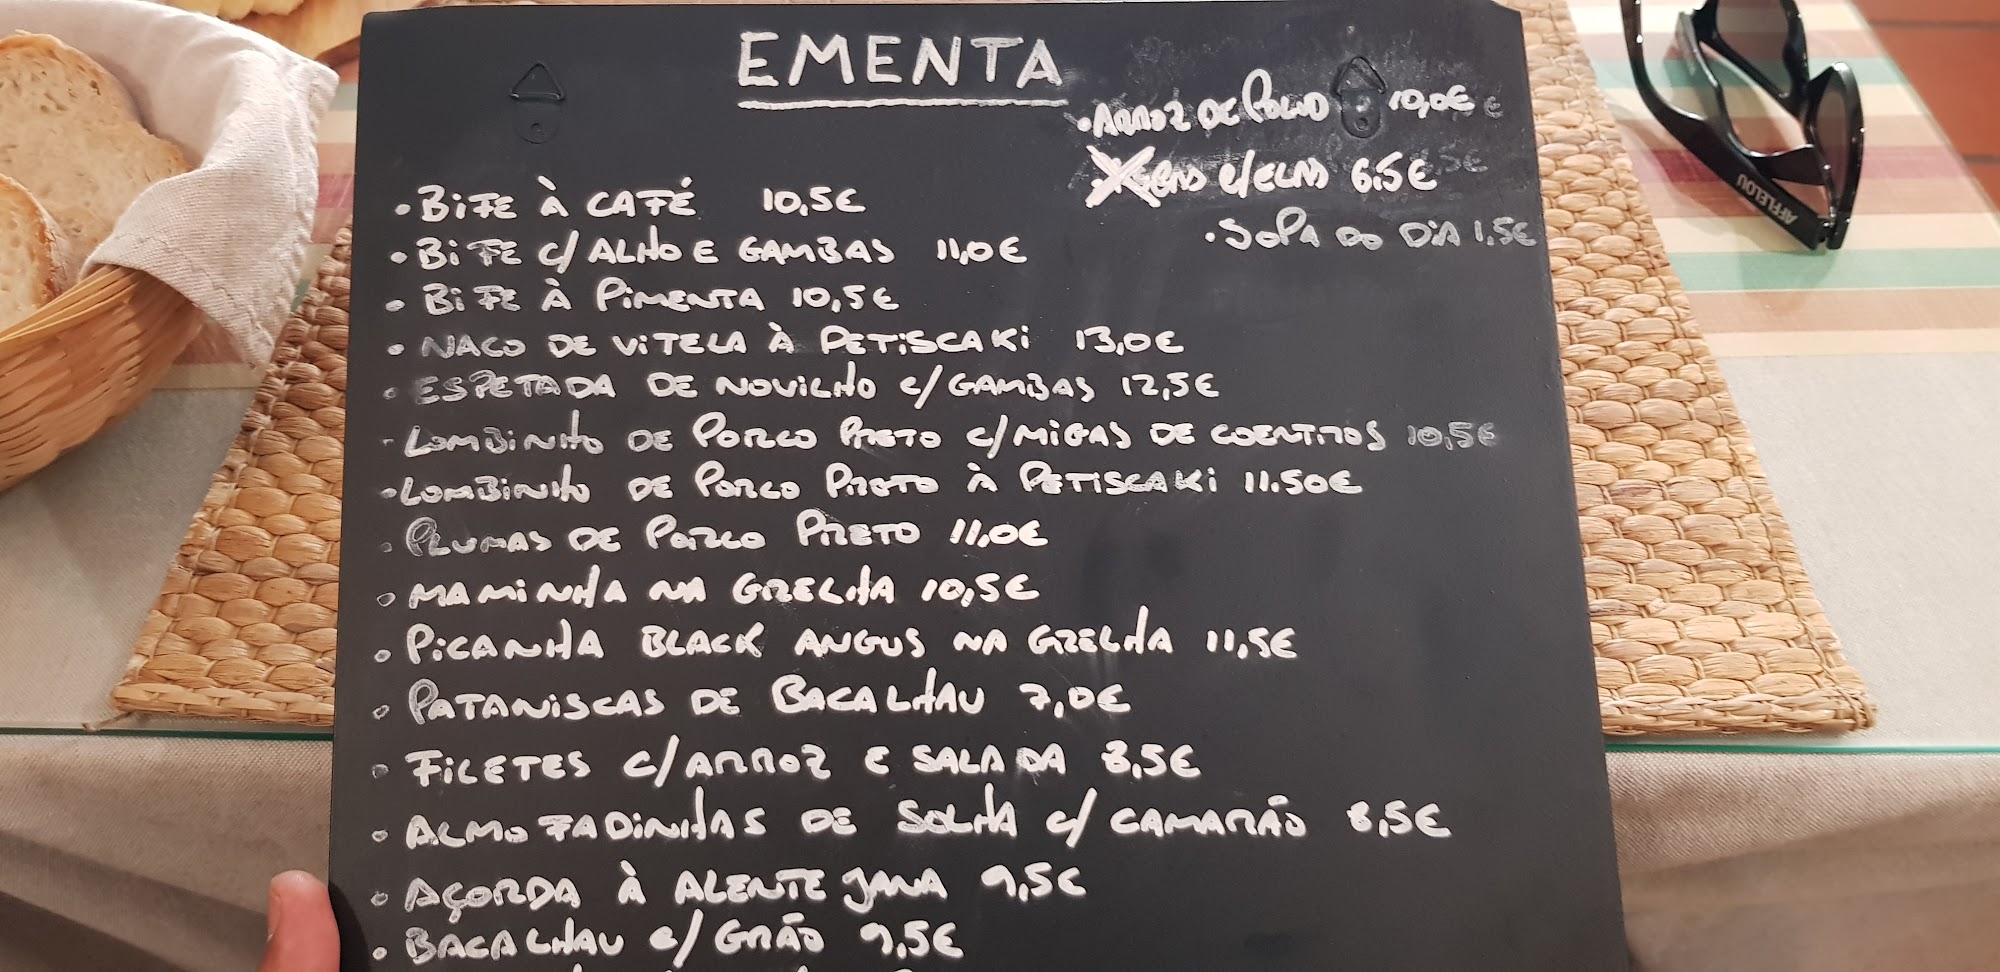 EMENTA
• ARROZ DE POLVO 10,0€
c/ELAS 6,5€
• SOPA DO DIA 1,5€
• BIFE À CAFÉ 10,5€
• BIFE C/ALHO E GAMBAS 11,0€
• BIFE À PIMENTA 10,5€
• NACO DE VITELA À PETISCAKI 13,0€
• ESPETADA DE NOVILHO C/GAMBAS 12,5€
• LOMBINHO DE PORCO PRETO C/MIGAS DE COENTROS 10,5€
• LOMBINHO DE PORCO PRETO À PETISCAKI 11.50€
• PLUMAS DE PORCO PRETO 11,0€
• MAMINHA NA GRELHA 10,5€
• PICANHA BLACK ANGUS NA GRELHA 11,5€
• PATANISCAS DE BACALHAU 7,0€
• FILETES C/ARROZ E SALADA 8,5€
• ALMOFADINHAS DE SOLHA C/ CAMARÃO 8,5€
• AÇORDA À ALENTEJANA 9,5€
• BACALHAU C/ GRÃO 9,5€
AFFLELOU